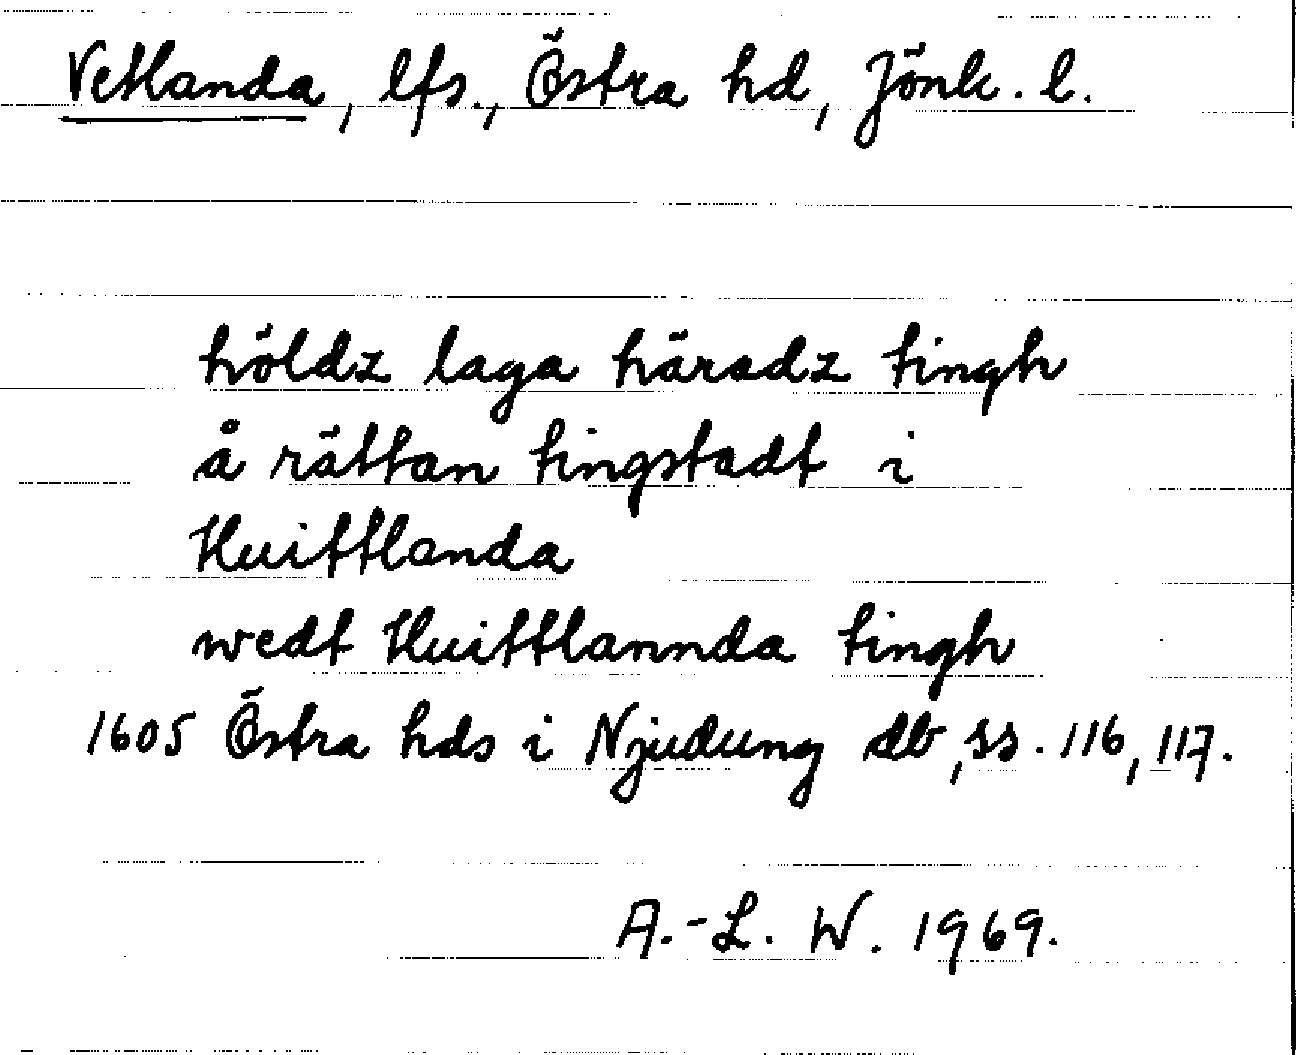 Vetlanda, lfs., Östra hd, Jönk. l.
höldz laga häradz tingh
å rättan tingstadt i
Huittlanda
wedt Huittlannda tingh
1605 Östra hds i Njudung db, ss. 116, 117.
A.-L. W. 1969.